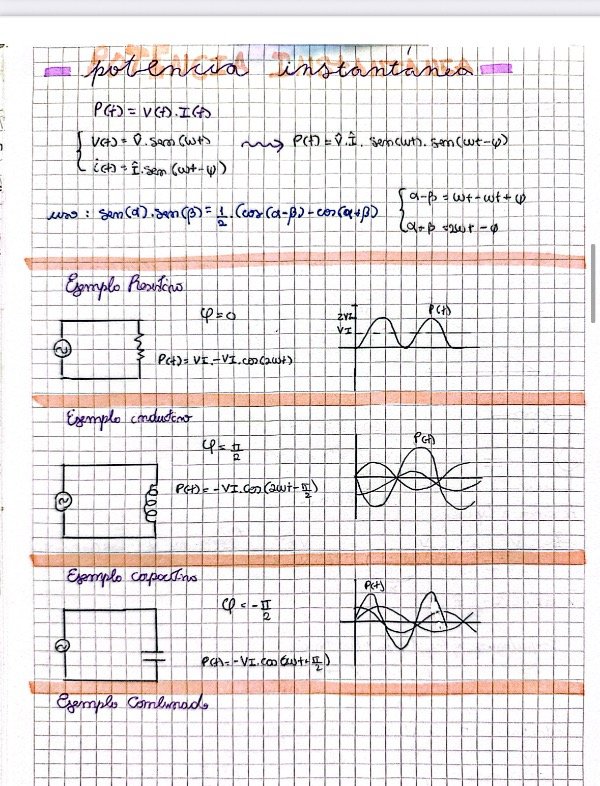 potencia instantánea
P(t) = V(t) . I(t)
V(t) = V̂ . sen(ωt)
i(t) = Î . sen(ωt-φ)
P(t) = V̂ . Î . sen(ωt) . sen(ωt-φ)
uso : sen(α) . sen(β) = 1/2 . (cos(α-β) - cos(α+β)
α-β = ωt - ωt + φ
α+β = 2ωt - φ
Ejemplo Resistivo
φ = 0
P(t) = VI - VI . cos(2ωt)
2VI
VI
P(t)
Ejemplo inductivo
φ = π/2
P(t) = -VI . cos(2ωt - π/2)
P(t)
Ejemplo capacitivo
φ = -π/2
P(t) = -VI . cos(2ωt + π/2)
P(t)
Ejemplo Combinado